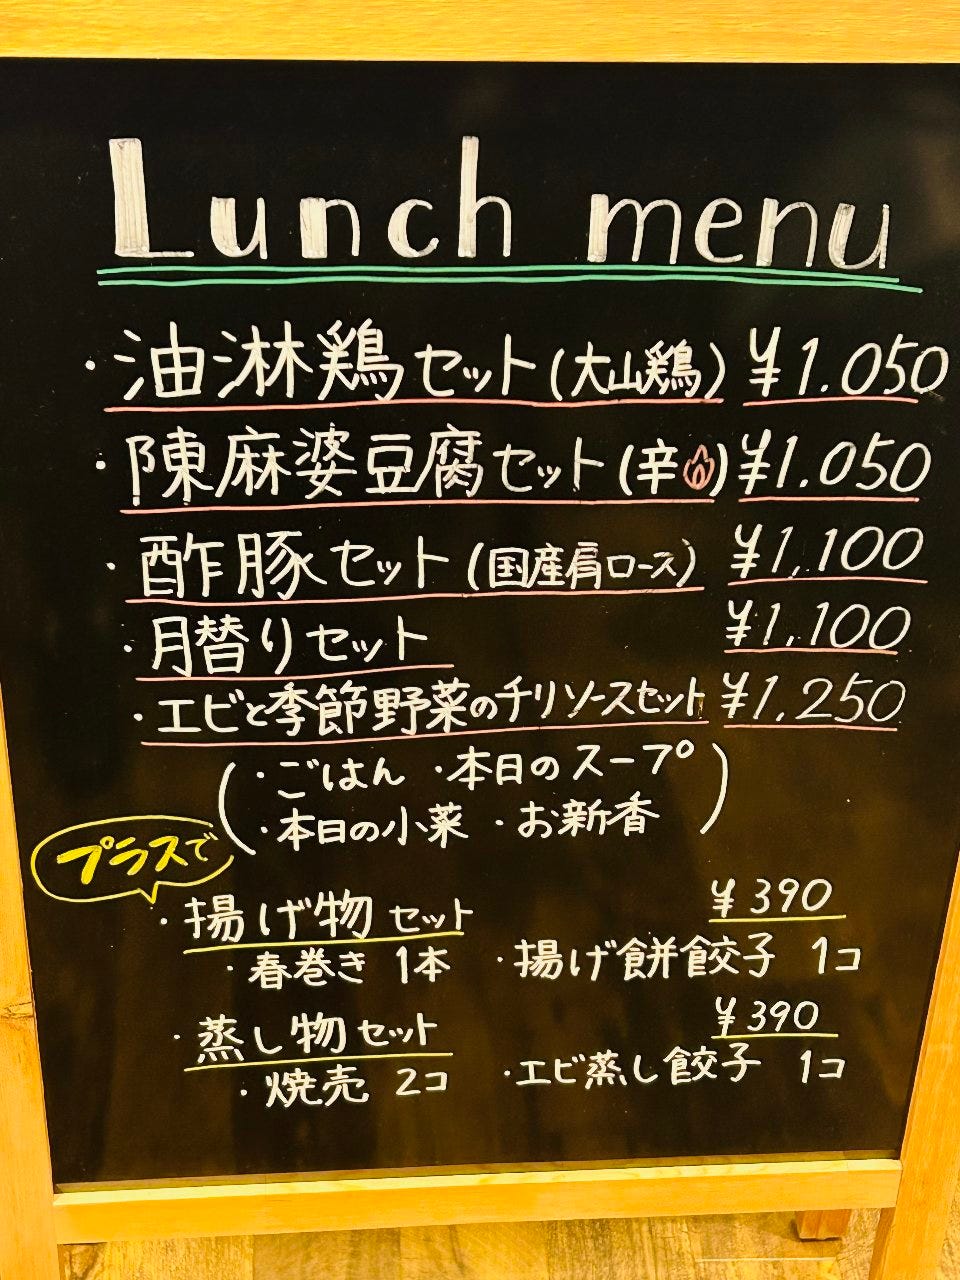 Lunch menu
・油淋鶏セット(大山鶏) ¥1.050
・陳麻婆豆腐セット(辛) ¥1.050
・酢豚セット(国産肩ロース) ¥1,100
・月替りセット ¥1,100
・エビと季節野菜のチリソースセット ¥1.250
(・ごはん ・本日のスープ
・本日の小菜 ・お新香)
プラスで
・揚げ物セット ¥390
・春巻き 1本 ・揚げ餅餃子 1コ
・蒸し物セット ¥390
・焼売 2コ ・エビ蒸し餃子 1コ